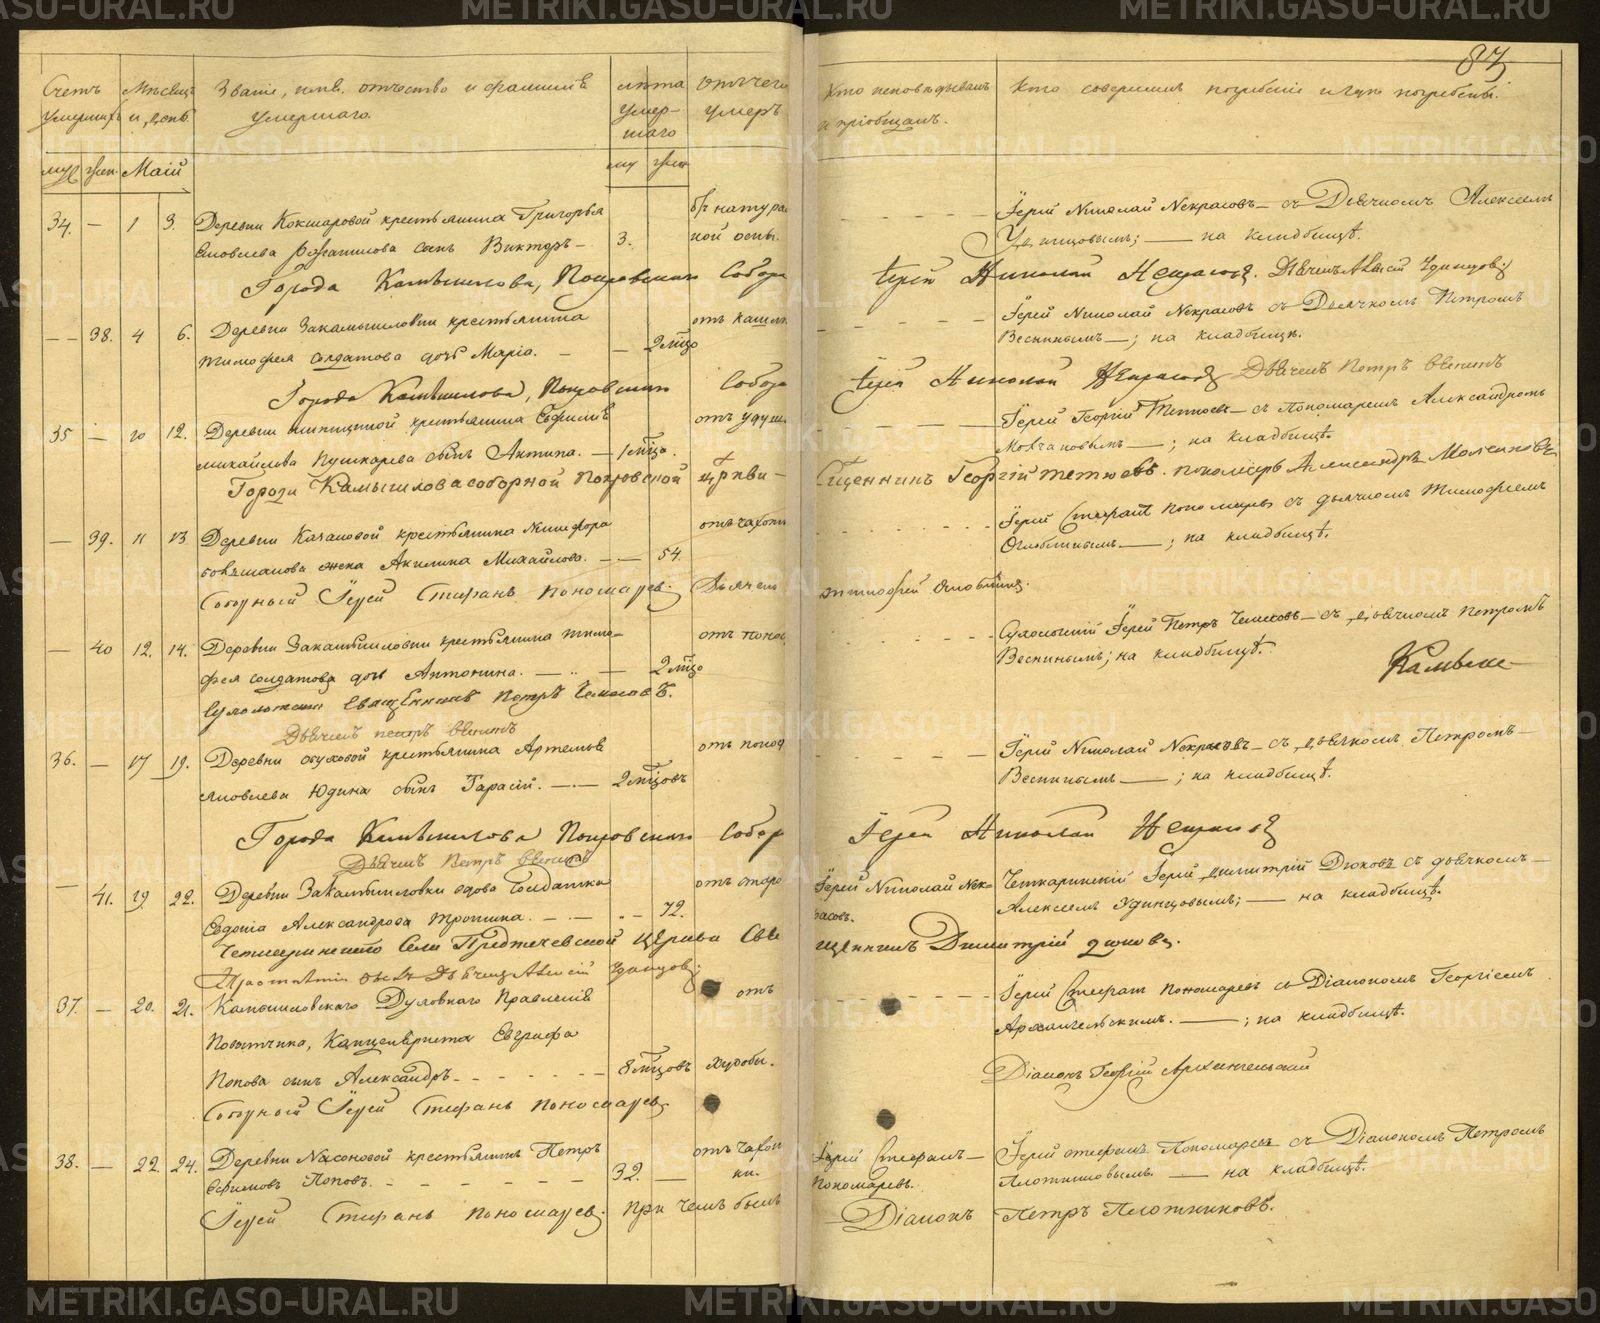 87
Счетъ умершихъ
Мѣсяцъ и день
Званіе, имя, отчество и фамилія умершаго.
лѣта умершаго
отъ чего умеръ
Кто исповѣдывалъ и пріобщалъ.
Кто совершалъ погребеніе и гдѣ погребены.
муж. жен. Маій му жен
34. — 1 3. Деревни Кокшаровой крестьянина Григорья б/ъ натура
Яковлева сынъ Викторъ — 3. ной оспы.
Іерей Николай Некрасовъ — съ Дьячкомъ Алексеемъ
Удинцовымъ; — на кладбищѣ.
Города Камышлова, Покровскаго Собора Іерей Николай Некрасовъ. Дьячекъ Алексій Удинцовъ;
— 38. 4 6. Деревни Закамышловки крестьянина отъ кашля
Тимофея Солдатова дочь Марія. — — 2 мѣцо
Іерей Николай Некрасовъ съ Дьячкомъ Петромъ
Веснинымъ —; на кладбищѣ.
Города Камышлова, Покровскаго Собора Іерей Николай Некрасовъ Дьячекъ Петръ Веснинъ
35 — 10 12. Деревни крестьянина Евфимія отъ удуш
Михайлова Пушкарева сынъ Антипа. — 1 мѣца.
Іерей Георгій Тетюевъ — съ Пономаремъ Александромъ
Молчановымъ —; на кладбищѣ.
Города Камышлова соборной Покровской церкви — Священникъ Георгій Тетюевъ. пономарь Александръ Молчановъ
— 39. 11 13 Деревни Качановой крестьянина Никифора отъ чахотк
жена Акилина Михайлова. — — 54.
Іерей Стефанъ Пономаревъ съ дьячкомъ Тимофеемъ
Оглоблинымъ —; на кладбищѣ.
Соборный Іерей Стефанъ Пономаревъ. Дьячекъ Тимофей Оглоблинъ.
— 40 12. 14. Деревни Закамышловки крестьянина Тимо- отъ понос
фея Солдатова дочь Антонина. — — 2 мѣцо
Сухоложскій Іерей Петръ — съ дьячкомъ Петромъ
Веснинымъ; на кладбищѣ.
Камыш—
Сухоложскій Священникъ Петръ
Дьячекъ Петръ Веснинъ
36. — 17 19. Деревни Обуховой крестьянина Артемья отъ понос
Яковлева Юдина сынъ Гарасій. — — 2 мѣцовъ
Іерей Николай Некрасовъ — съ дьячкомъ Петромъ —
Веснинымъ —; на кладбищѣ.
Города Камышлова Покровскаго Собора Іерей Николай Некрасовъ
Дьячекъ Петръ Веснинъ
— 41. 19 22. Деревни Закамышловки вдова Солдатка отъ старо
Евдокія Александрова Трошина. — — 72.
Іерей Николай Некрасовъ.
Іерей Димитрій Дюковъ съ дьячкомъ —
Алексеемъ Удинцовымъ; — на кладбищѣ.
Села Предтечевской Церкви Священникъ Димитрій Дюковъ.
Дьячекъ Алексій Удинцовъ;
37. — 20. 21. Камышловскаго Духовнаго Правленія отъ
Повытчика, Канцеляриста Евграфа
Попова сынъ Александръ. — — — 8 мѣцовъ худобы.
Іерей Стефанъ Пономаревъ съ Діакономъ Георгіемъ
Архангельскимъ. —; на кладбищѣ.
Діаконъ Георгій Архангельскій
Соборный Іерей Стефанъ Пономаревъ
38. — 22 24. Деревни Насоновой крестьянинъ Петръ отъ чахот
Ефимовъ Поповъ. — — — 32. — ки.
Іерей Стефанъ — Пономаревъ.
Іерей Стефанъ Пономаревъ съ Діакономъ Петромъ
Плотниковымъ. — на кладбищѣ.
Іерей Стефанъ Пономаревъ. При чемъ былъ Діаконъ Петръ Плотниковъ.
METRIKI.GASO-URAL.RU